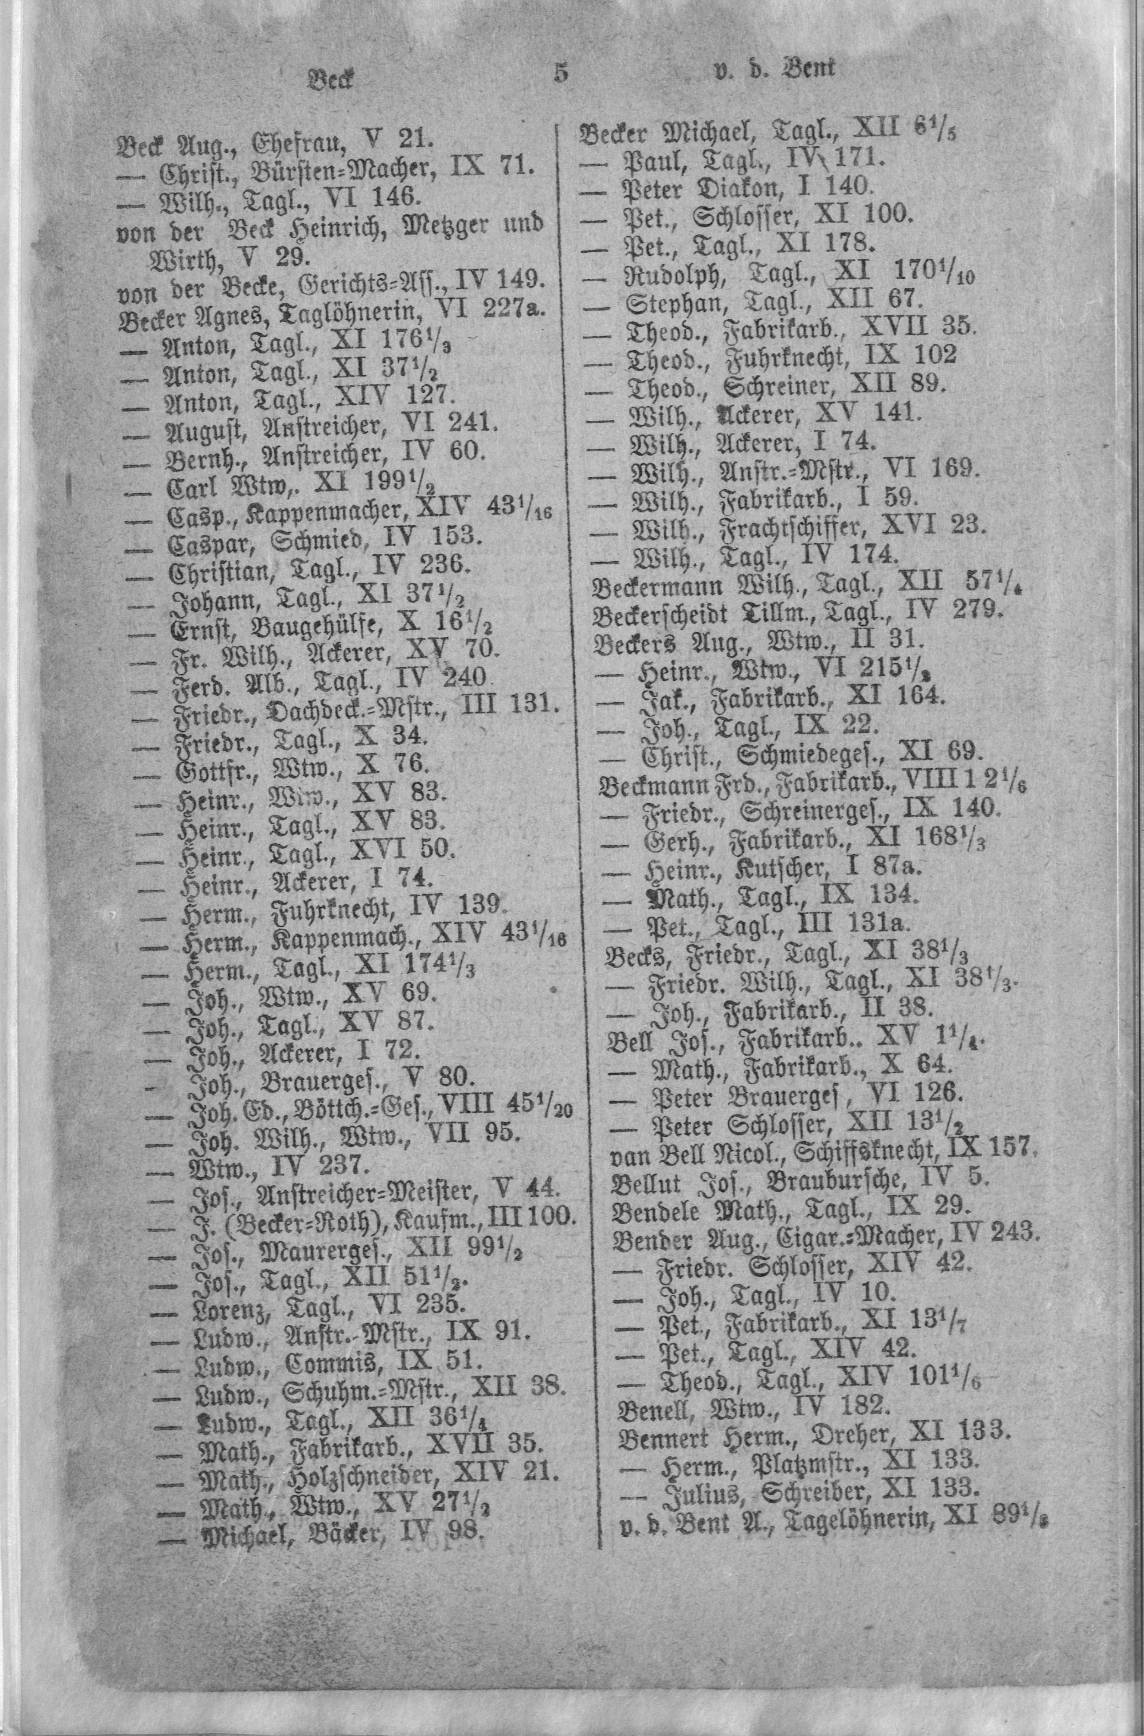 Beck
5
v. d. Bent
Beck Aug., Ehefrau, V 21.
— Christ., Bürsten=Macher, IX 71.
— Wilh., Tagl., VI 146.
von der Beck Heinrich, Metzger und
Wirth, V 29.
von der Becke, Gerichts=Ass., IV 149.
Becker Agnes, Taglöhnerin, VI 227a.
— Anton, Tagl., XI 176 1/3
— Anton, Tagl., XI 37 1/2
— Anton, Tagl., XIV 127.
— August, Anstreicher, VI 241.
— Bernh., Anstreicher, IV 60.
— Carl Wtw,. XI 199 1/2
— Casp., Kappenmacher, XIV 43 1/16
— Caspar, Schmied, IV 153.
— Christian, Tagl., IV 236.
— Johann, Tagl., XI 37 1/2
— Ernst, Baugehülfe, X 16 1/2
— Fr. Wilh., Ackerer, XV 70.
— Ferd. Alb., Tagl., IV 240
— Friedr., Dachdeck.=Mstr., III 131.
— Friedr., Tagl., X 34.
— Gottfr., Wtw., X 76.
— Heinr., Wtw., XV 83.
— Heinr., Tagl., XV 83.
— Heinr., Tagl., XVI 50.
— Heinr., Ackerer, I 74.
— Herm., Fuhrknecht, IV 139.
— Herm., Kappenmach., XIV 43 1/16
— Herm., Tagl., XI 174 1/3
— Joh., Wtw., XV 69.
— Joh., Tagl., XV 87.
— Joh., Ackerer, I 72.
- Joh., Brauerges., V 80.
— Joh. Ed., Böttch.=Ges., VIII 45 1/20
— Joh. Wilh., Wtw., VII 95.
— Wtw., IV 237.
— Jos., Anstreicher=Meister, V 44.
— J. (Becker=Roth), Kaufm., III 100.
— Jos., Maurerges., XII 99 1/2
— Jos., Tagl., XII 51 1/2.
— Lorenz, Tagl., VI 235.
— Ludw., Anstr.-Mstr., IX 91.
— Ludw., Commis, IX 51.
— Ludw., Schuhm.=Mstr., XII 38.
— Ludw., Tagl., XII 36 1/4
— Math., Fabrikarb., XVII 35.
— Math., Holzschneider, XIV 21.
— Math., Wtw., XV 27 1/2
— Michael, Bäcker, IV 98.
Becker Michael, Tagl., XII 6 1/5
— Paul, Tagl., IV 171.
— Peter Diakon, I 140.
— Pet., Schlosser, XI 100.
— Pet., Tagl., XI 178.
— Rudolph, Tagl., XI 170 1/10
— Stephan, Tagl., XII 67.
— Theod., Fabrikarb., XVII 35.
— Theod., Fuhrknecht, IX 102
— Theod., Schreiner, XII 89.
— Wilh., Ackerer, XV 141.
— Wilh., Ackerer, I 74.
— Wilh., Anstr.=Mstr., VI 169.
— Wilh., Fabrikarb., I 59.
— Wilh., Frachtschiffer, XVI 23.
— Wilh., Tagl., IV 174.
Beckermann Wilh., Tagl., XII 57 1/4
Beckerscheidt Tillm., Tagl., IV 279.
Beckers Aug., Wtw., II 31.
— Heinr., Wtw., VI 215 1/2
— Jak., Fabrikarb., XI 164.
— Joh., Tagl., IX 22.
— Christ., Schmiedeges., XI 69.
Beckmann Frd., Fabrikarb., VIII 1 2 1/6
— Friedr., Schreinerges., IX 140.
— Gerh., Fabrikarb., XI 168 1/3
— Heinr., Kutscher, I 87a.
— Math., Tagl., IX 134.
— Pet., Tagl., III 131a.
Becks, Friedr., Tagl., XI 38 1/3
— Friedr. Wilh., Tagl., XI 38 1/3.
— Joh., Fabrikarb., II 38.
Bell Jos., Fabrikarb.. XV 1 1/4.
— Math., Fabrikarb., X 64.
— Peter Brauerges, VI 126.
— Peter Schlosser, XII 13 1/2
van Bell Nicol., Schiffsknecht, IX 157.
Bellut Jos., Braubursche, IV 5.
Bendele Math., Tagl., IX 29.
Bender Aug., Cigar.=Macher, IV 243.
— Friedr. Schlosser, XIV 42.
— Joh., Tagl., IV 10.
— Pet., Fabrikarb., XI 13 1/7
— Pet., Tagl., XIV 42.
— Theod., Tagl., XIV 101 1/6
Benell, Wtw., IV 182.
Bennert Herm., Dreher, XI 133.
— Herm., Platzmstr., XI 133.
— Julius, Schreiber, XI 133.
v. d. Bent A., Tagelöhnerin, XI 89 1/3